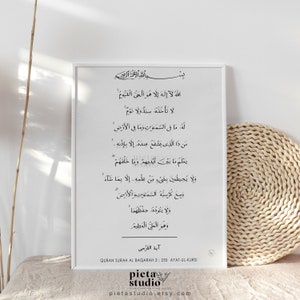 بِسْمِ اللَّهِ الرَّحْمَٰنِ الرَّحِيمِ
اللَّهُ لَا إِلَٰهَ إِلَّا هُوَ الْحَيُّ الْقَيُّومُ ۚ
لَا تَأْخُذُهُ سِنَةٌ وَلَا نَوْمٌ ۚ
لَهُ مَا فِي السَّمَاوَاتِ وَمَا فِي الْأَرْضِ ۗ
مَن ذَا الَّذِي يَشْفَعُ عِندَهُ إِلَّا بِإِذْنِهِ ۚ
يَعْلَمُ مَا بَيْنَ أَيْدِيهِمْ وَمَا خَلْفَهُمْ ۖ
وَلَا يُحِيطُونَ بِشَيْءٍ مِّنْ عِلْمِهِ إِلَّا بِمَا شَاءَ ۚ
وَسِعَ كُرْسِيُّهُ السَّمَاوَاتِ وَالْأَرْضَ ۖ
وَلَا يَئُودُهُ حِفْظُهُمَا ۚ
وَهُوَ الْعَلِيُّ الْعَظِيمُ
QURAN SURAH AL BAQARAH 2 : 255 AYAT-UL-KURSI
pieta
studio
pietastudio.etsy.com